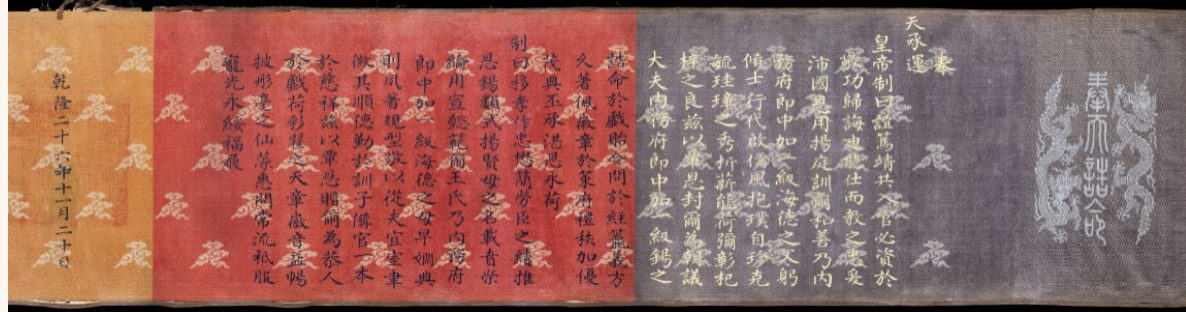 奉天誥命
奉
天承運
皇帝制曰誼篤靖共入官必資於
敬功歸誨迪能仕而教之忠爰
沛國恩用揚庭訓爾孔善乃內
務府郎中加一級海德之父躬
傾士行代啟儒風抱璞自珍克
毓珪璋之秀析薪能荷彌彰杞
梓之良茲以覃恩封爾爲朝議
大夫內務府郎中加一級錫之
誥命於戲貽令問於經籯義方
久著佩徽章於策府禮秩加優
茂典丕承湛恩永荷
制曰移孝作忠懋簡勞臣之績推
恩錫類式揚賢母之名載賁榮
綸用宣懿範爾王氏乃內務府
郎中加一級海德之母早嫻典
則夙著規型敬以從夫宜室聿
徵其順德勤於訓子傳官一本
於慈祥茲以覃恩贈爾為恭人
於戲荷彩翟之天章徽音益暢
披彤毫之仙藻惠問常流祗服
寵光永綏福履
乾隆二十六年十一月二十日